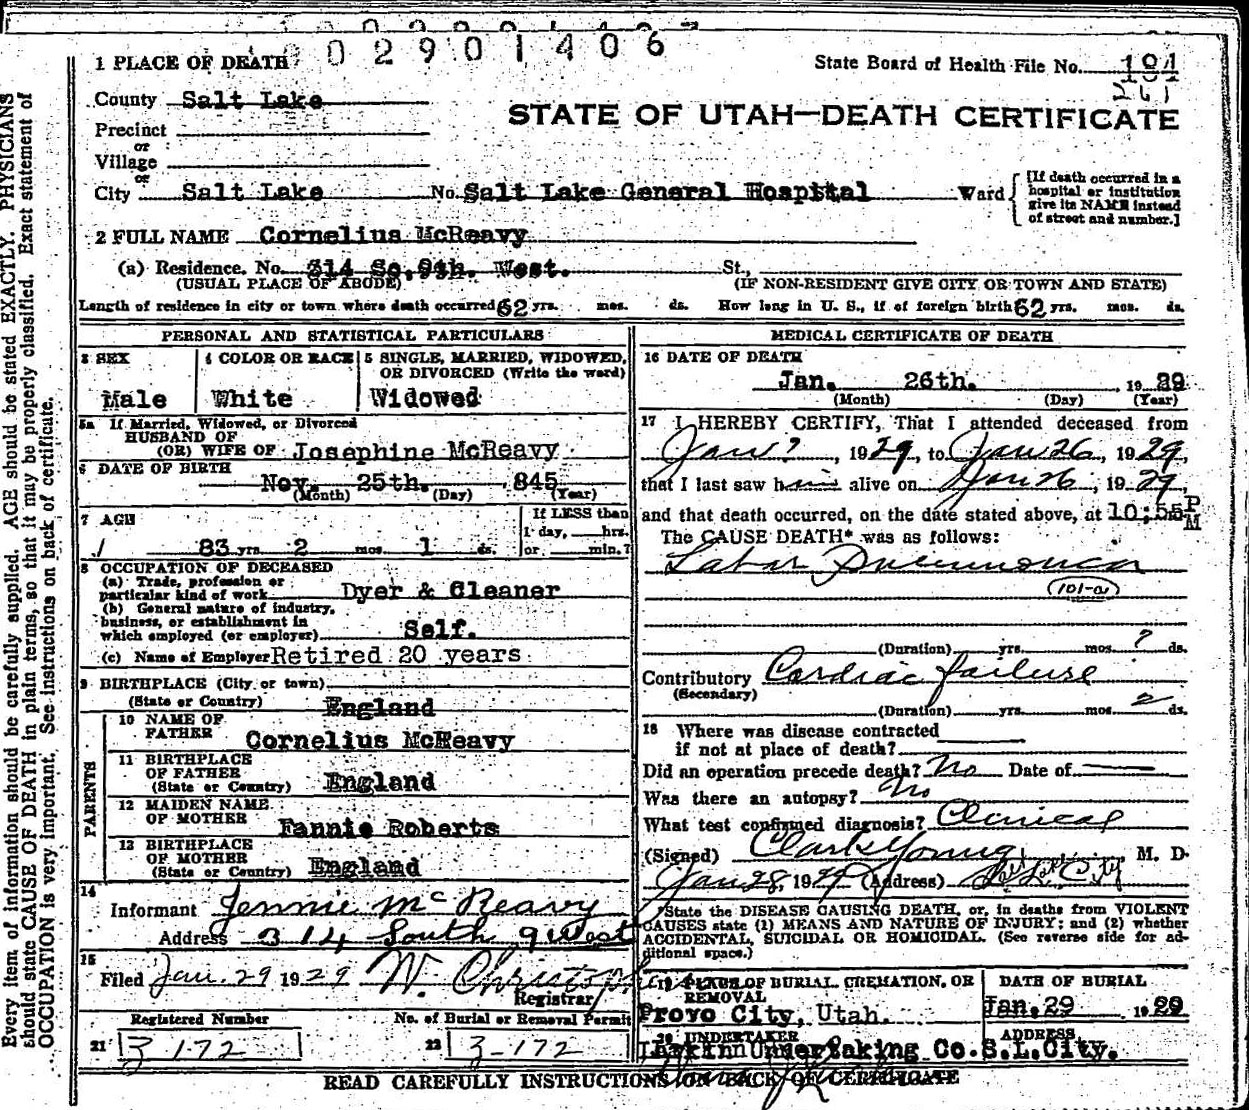 0 2 9 0 1 4 0 6
1 PLACE OF DEATH
State Board of Health File No. 191
261
County Salt Lake
STATE OF UTAH—DEATH CERTIFICATE
Precinct
or
Village
or
City Salt Lake No. Salt Lake General Hospital Ward
[If death occurred in a
hospital or institution
give its NAME instead
of street and number.]
2 FULL NAME Cornelius McReavy
(a) Residence. No. 314 So. 9th. West. St.,
(USUAL PLACE OF ABODE) (IF NON-RESIDENT GIVE CITY OR TOWN AND STATE)
Length of residence in city or town where death occurred 62 yrs. mos. ds. How long in U. S., if of foreign birth 62 yrs. mos. ds.
PERSONAL AND STATISTICAL PARTICULARS
3 SEX
Male
4 COLOR OR RACE
White
5 SINGLE, MARRIED, WIDOWED,
OR DIVORCED (Write the word)
Widowed
5a If Married, Widowed, or Divorced
HUSBAND OF
(OR) WIFE OF Josephine McReavy
6 DATE OF BIRTH
Nov. 25th. 845
(Month) (Day) (Year)
7 AGE
83 yrs 2 mos 1 ds.
If LESS than
1 day, hrs.
or min.?
8 OCCUPATION OF DECEASED
(a) Trade, profession or
particular kind of work Dyer & Cleaner
(b) General nature of industry,
business, or establishment in
which employed (or employer) Self.
(c) Name of Employer Retired 20 years
9 BIRTHPLACE (City or town)
(State or Country) England
PARENTS
10 NAME OF
FATHER
Cornelius McReavy
11 BIRTHPLACE
OF FATHER
(State or Country) England
12 MAIDEN NAME
OF MOTHER
Fannie Roberts
13 BIRTHPLACE
OF MOTHER
(State or Country) England
14
Informant Jennie McReavy
Address 314 South 9 West
15
Filed Jan. 29 1929 W. Christopherson
Registrar
Registered Number
21 3172
No. of Burial or Removal Permit
22 3-172
MEDICAL CERTIFICATE OF DEATH
16 DATE OF DEATH
Jan. 26th. 1929
(Month) (Day) (Year)
17 I HEREBY CERTIFY, That I attended deceased from
Jan ?, 1929, to Jan 26, 1929,
that I last saw him alive on Jan 26, 1929,
and that death occurred, on the date stated above, at 10:55 P M
The CAUSE DEATH* was as follows:
Lobar Pneumonia
(101-a)
(Duration) yrs. mos. ? ds.
Contributory Cardiac failure
(Secondary)
(Duration) yrs. mos. 2 ds.
18 Where was disease contracted
if not at place of death?
Did an operation precede death? No Date of
Was there an autopsy? No
What test confirmed diagnosis? Clinical
(Signed) Clark Young M. D.
Jan 28, 1929 (Address) Salt Lake City
*State the DISEASE CAUSING DEATH, or, in deaths from VIOLENT
CAUSES state (1) MEANS AND NATURE OF INJURY; and (2) whether
ACCIDENTAL, SUICIDAL OR HOMICIDAL. (See reverse side for ad-
ditional space.)
19 PLACE OF BURIAL, CREMATION, OR
REMOVAL
Provo City, Utah.
DATE OF BURIAL
Jan. 29 1929
20 UNDERTAKER
Larkin Undertaking Co.
ADDRESS
S.L.City.
READ CAREFULLY INSTRUCTIONS ON BACK OF CERTIFICATE
Every item of information should be carefully supplied. AGE should be stated EXACTLY. PHYSICIANS
should state CAUSE OF DEATH in plain terms, so that it may be properly classified. Exact statement of
OCCUPATION is very important. See instructions on back of certificate.